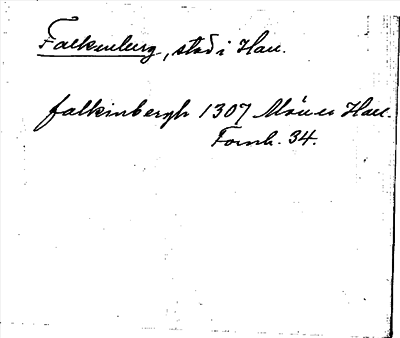 Falkenberg, stad i Hall.
falkinbergh 1307 Mån es Hall.
Fornh. 34.